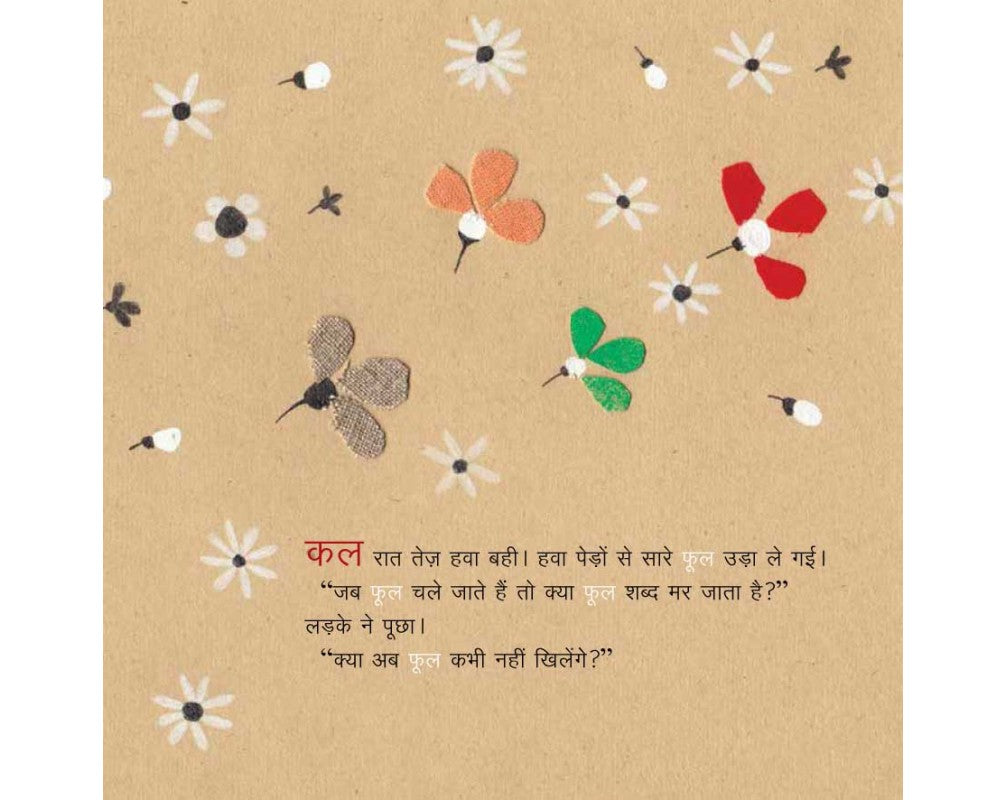 कल रात तेज़ हवा बही। हवा पेड़ों से सारे फूल उड़ा ले गई।
“जब फूल चले जाते हैं तो क्या फूल शब्द मर जाता है?”
लड़के ने पूछा।
“क्या अब फूल कभी नहीं खिलेंगे?”